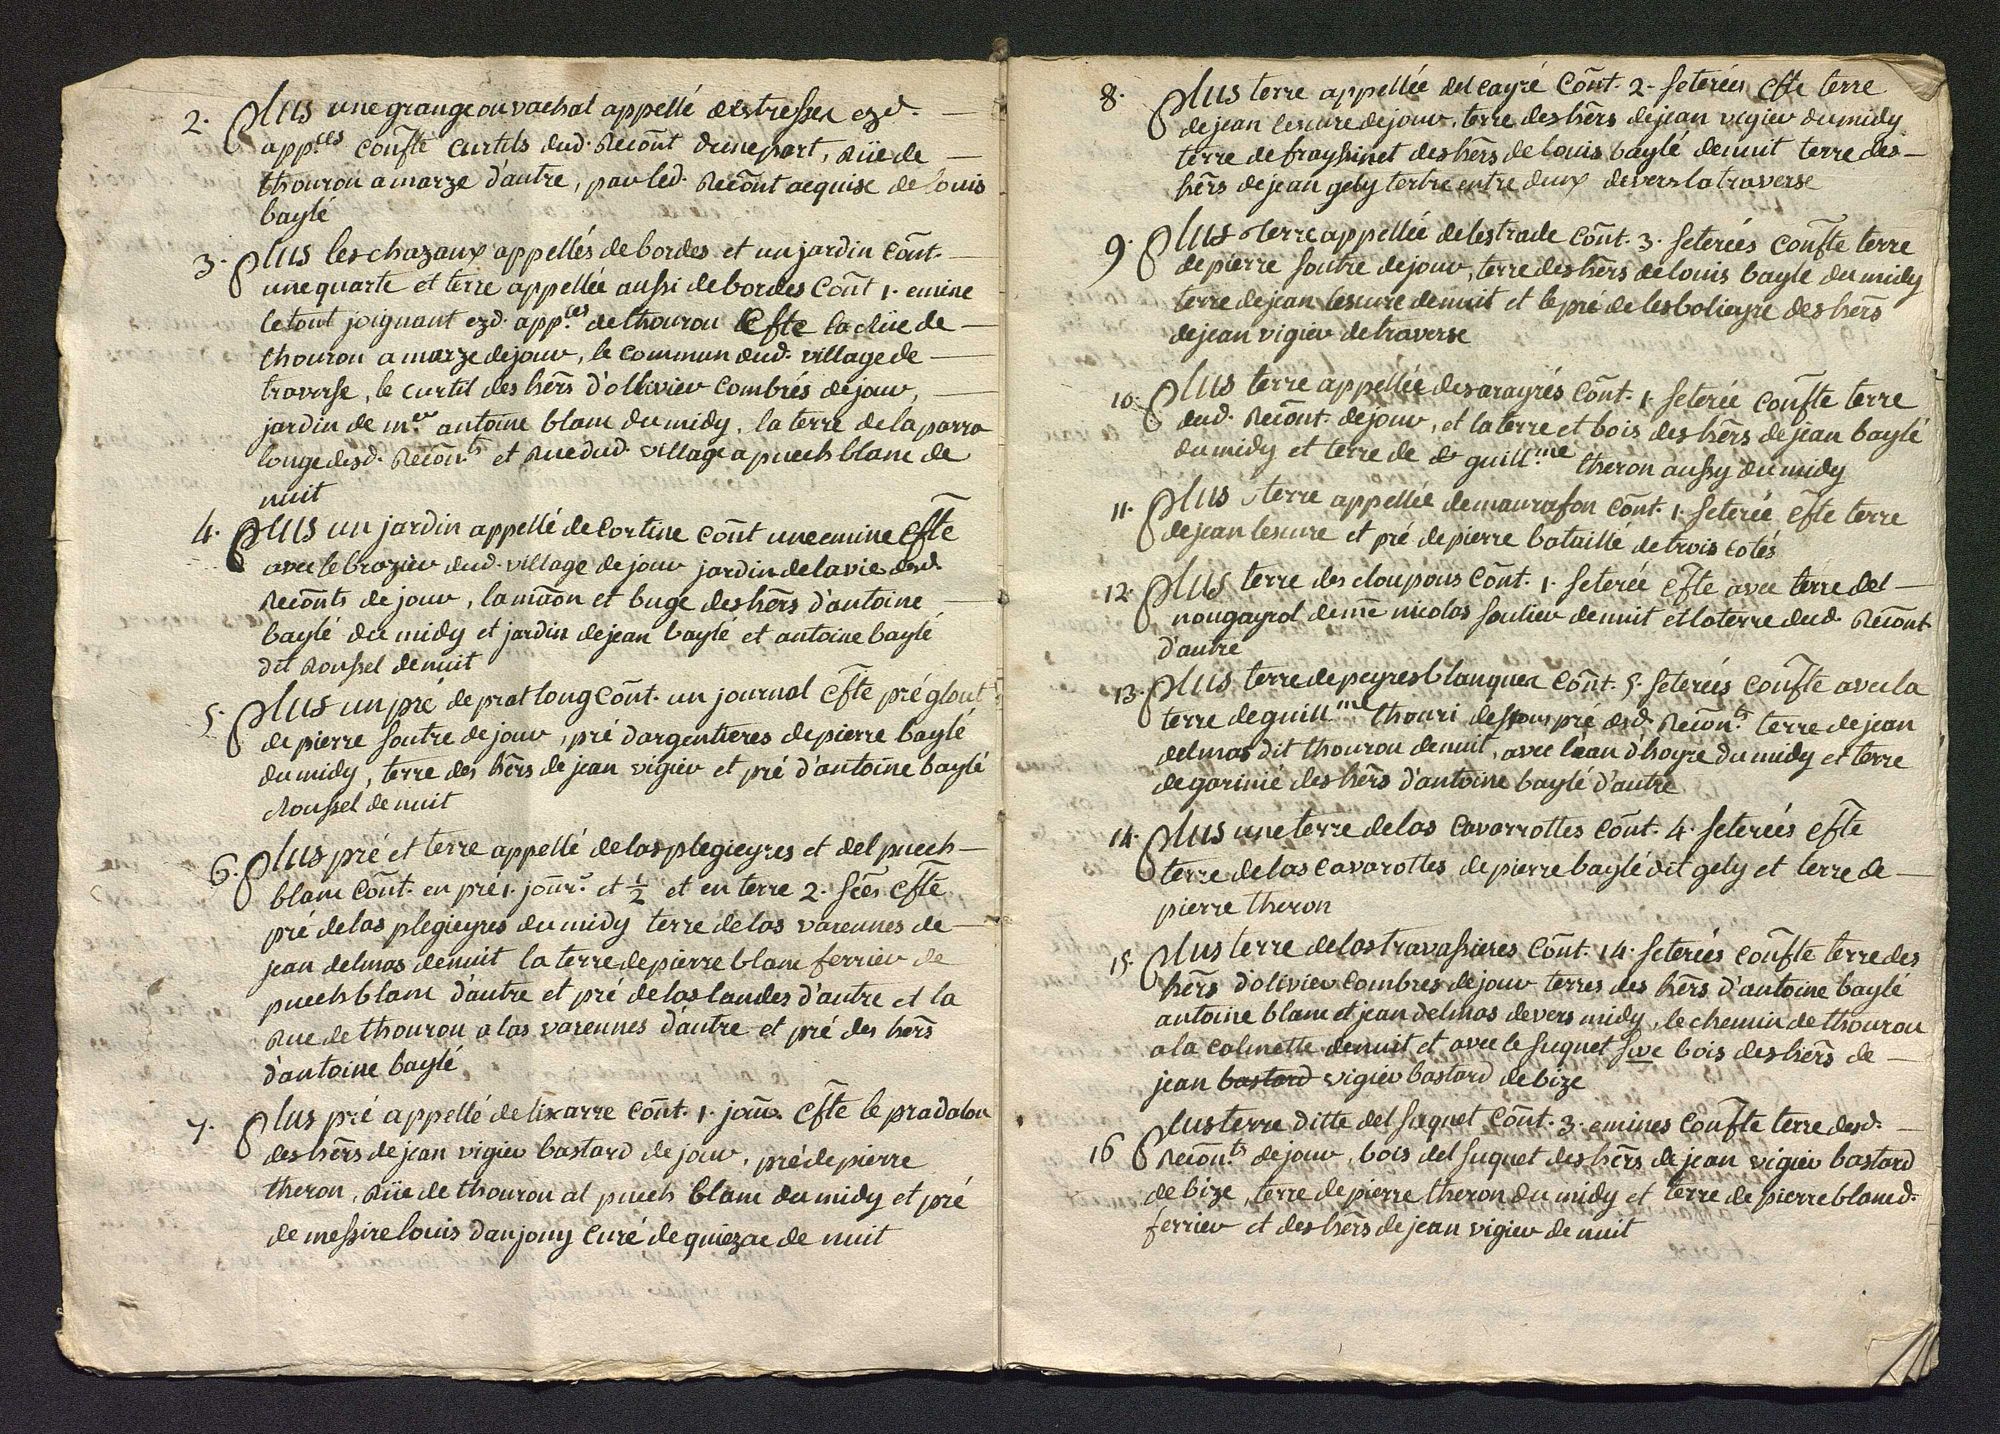 2. Plus une grange ou vachal appellé destresses ezd. —
app.ces confte curtils dud. Recont d'une part, Rüe de —
thourou a marze d'autre, par led. Recont acquise de louis
baylé
3. Plus les chazaux appellés de bordes et un jardin cont. —
une quarte et terre appellée aussi de bordes cont 1. emine
le tout joignant ezd. app.ces de thourou Cfte la Rüe de —
thourou a marze de jour, le commun dud. village de —
traverse, le curtil des hers d'ollivier combrés de jour, —
jardin de m.er antoine blanc du midy, la terre de la parra
longe desd. Recon.ts et Rue dud. village a puech blanc de
nuit
4. Plus un jardin appellé de Cortine cont une emine Cfte
avec le brazier dud. village de jour jardin de la vie desd.
Reconts de jour, la maon et buge des hers d'antoine —
baylé du midy et jardin de jean baylé et antoine baylé
dit Roussel de nuit
5. Plus un pré de prat long cont. un journal Cfte pré glout
de pierre soutre de jour, pré dargentieres de pierre baylé
du midy, terre des hers de jean vigier et pré d'antoine baylé
Roussel de nuit
6. Plus pré et terre appellé de las plegieyres et del puech —
blanc cont. en pré 1. journ. et ½ et en terre 2. sées Cfte
pré de las plegieyres du midy terre de las varennes de —
jean delmas de nuit la terre de pierre blanc ferrier de
puech blanc d'autre et pré de las landes d'autre et la
Rue de thourou a las varennes d'autre et pré des hers
d'antoine baylé
7. Plus pré appellé de lixarre cont. 1. journ. Cfte le pradalou
des hers de jean vigier bastard de jour, pré de pierre
theron, Rüe de thourou al puech blanc du midy et pré
de messire louis danjony curé de quiezac de nuit
8. Plus terre appellée del cayré Cont. 2. seterées Cfte terre
de jean lescure de jour, terre des hers de jean vigier du midy
terre de frayssinet des hers de louis baylé de nuit terre des —
hers de jean gely tertre entre deux devers la traverse
9. Plus terre appellée de lestrade Cont. 3. seterées confte terre
de pierre soutre de jour, terre des hers de louis baylé du midy
terre de jean lescure de nuit et le pré de lesbolieyre des hers
de jean vigier de traverse
10. Plus terre appellée des arayrés Cont. 1. seterée confte terre
dud. Recont. de jour, et la terre et bois des hers de jean baylé
du midy et terre de guill.me theron aussy du midy
11. Plus terre appellée de maurafon cont. 1. seterée Cfte terre
de jean lescure et pré de pierre bataillé de trois cotés
12. Plus terre des cloupous Cont. 1. seterée Cfte avec terre del —
nougayrol de me nicolas soulier de nuit et la terre dud. Recont.
d'autre
13. Plus terre de peyres blanques Cont. 5. seterées confte avec la
terre de guill.me thouri dessous pré desd. Recon.ts terre de jean
delmas dit thourou de nuit, avec lean dhoyre du midy et terre
de garinié des hers d'antoine baylé d'autre
14. Plus une terre de las Cavarrottes Cont. 4. seterées Cfte
terre de las cavarottes de pierre baylé dit gely et terre de —
pierre theron
15. Plus terre de las travassieres Cont. 14. seterées confte terre des
hers d'olivier combres de jour terres des hers d'antoine baylé
antoine blanc et jean delmas devers midy, le chemin de thourou
a la calmette de nuit et avec le suquet sive bois des hers de —
jean bastard vigier bastard de bize
16 Plus terre ditte del suquet Cont. 3. emines Confte terre desd. —
Recon.ts de jour, bois del suquet des hers de jean vigier bastard
de bize, terre de pierre theron du midy et terre de pierre blanc d.
ferrier et des hers de jean vigier de nuit